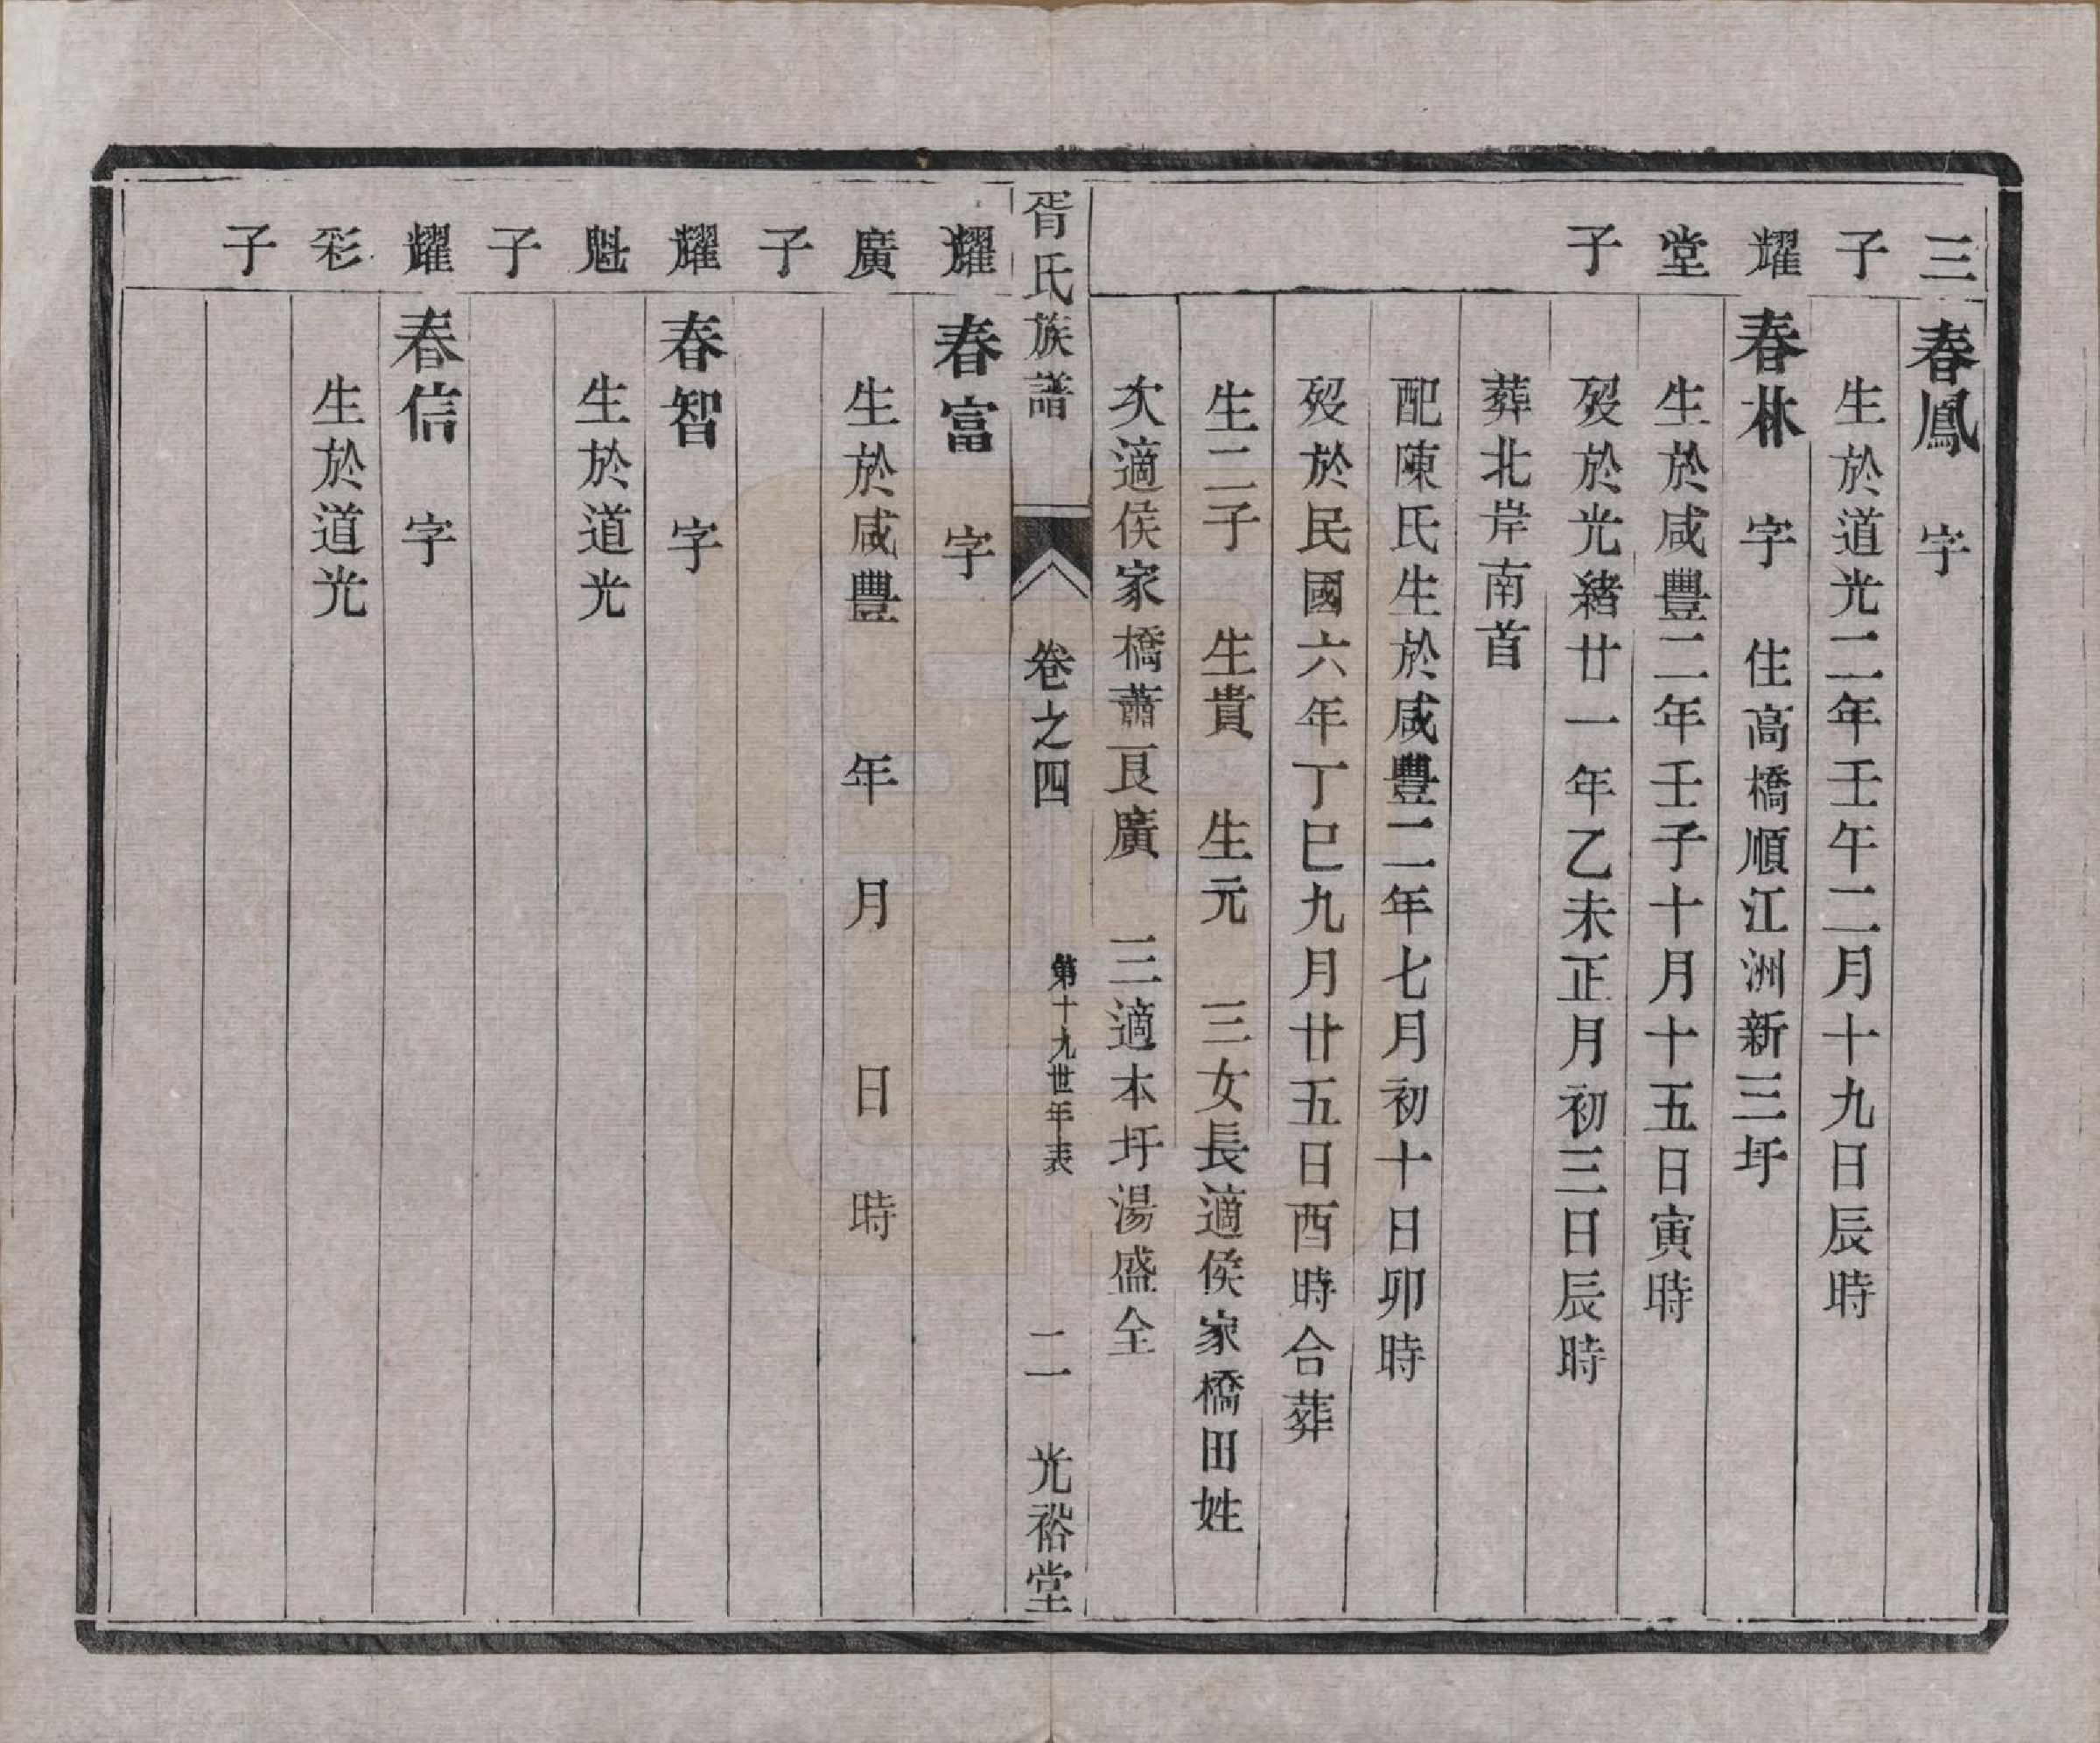 三　春鳳　字
子　生於道光二年壬午二月十九日辰時
耀　春林　字　住高橋順江洲新三圩
堂　生於咸豐二年壬子十月十五日寅時
子　歿於光緒廿一年乙未正月初三日辰時
葬北岸南首
配陳氏生於咸豐二年七月初十日卯時
歿於民國六年丁巳九月廿五日酉時合葬
生二子　生貴　生元　三女長適侯家橋田姓
次適侯家橋蕭艮廣　三適本圩湯盛全
胥氏族譜　卷之四　第十九世年表　二　光裕堂
耀　春富　字
廣　生於咸豐　年　月　日　時
子
耀　春智　字
魁　生於道光
子
耀　春信　字
彩　生於道光
子